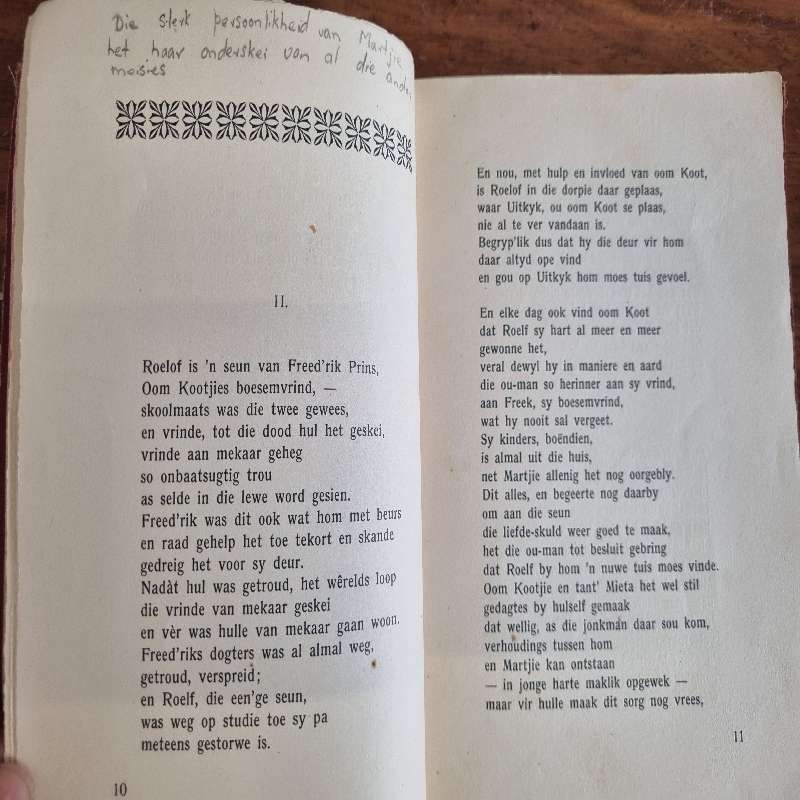 Die sterk persoonlikheid van Martjie
het haar onderskei van al die ander
meisies
II.
Roelof is 'n seun van Freed'rik Prins,
Oom Kootjies boesemvrind, —
skoolmaats was die twee gewees,
en vrinde, tot die dood hul het geskei,
vrinde aan mekaar geheg
so onbaatsugtig trou
as selde in die lewe word gesien.
Freed'rik was dit ook wat hom met beurs
en raad gehelp het toe tekort en skande
gedreig het voor sy deur.
Nadàt hul was getroud, het wêrelds loop
die vrinde van mekaar geskei
en vèr was hulle van mekaar gaan woon.
Freed'riks dogters was al almal weg,
getroud, verspreid;
en Roelf, die een'ge seun,
was weg op studie toe sy pa
meteens gestorwe is.
10
En nou, met hulp en invloed van oom Koot,
is Roelof in die dorpie daar geplaas,
waar Uitkyk, ou oom Koot se plaas,
nie al te ver vandaan is.
Begryp'lik dus dat hy die deur vir hom
daar altyd ope vind
en gou op Uitkyk hom moes tuis gevoel.
En elke dag ook vind oom Koot
dat Roelf sy hart al meer en meer
gewonne het,
veral dewyl hy in maniere en aard
die ou-man so herinner aan sy vrind,
aan Freek, sy boesemvrind,
wat hy nooit sal vergeet.
Sy kinders, boëndien,
is almal uit die huis,
net Martjie allenig het nog oorgebly.
Dit alles, en begeerte nog daarby
om aan die seun
die liefde-skuld weer goed te maak,
het die ou-man tot besluit gebring
dat Roelf by hom 'n nuwe tuis moes vinde.
Oom Kootjie en tant' Mieta het wel stil
gedagtes by hulself gemaak
dat wellig, as die jonkman daar sou kom,
verhoudings tussen hom
en Martjie kan ontstaan
— in jonge harte maklik opgewek —
maar vir hulle maak dit sorg nog vrees,
11